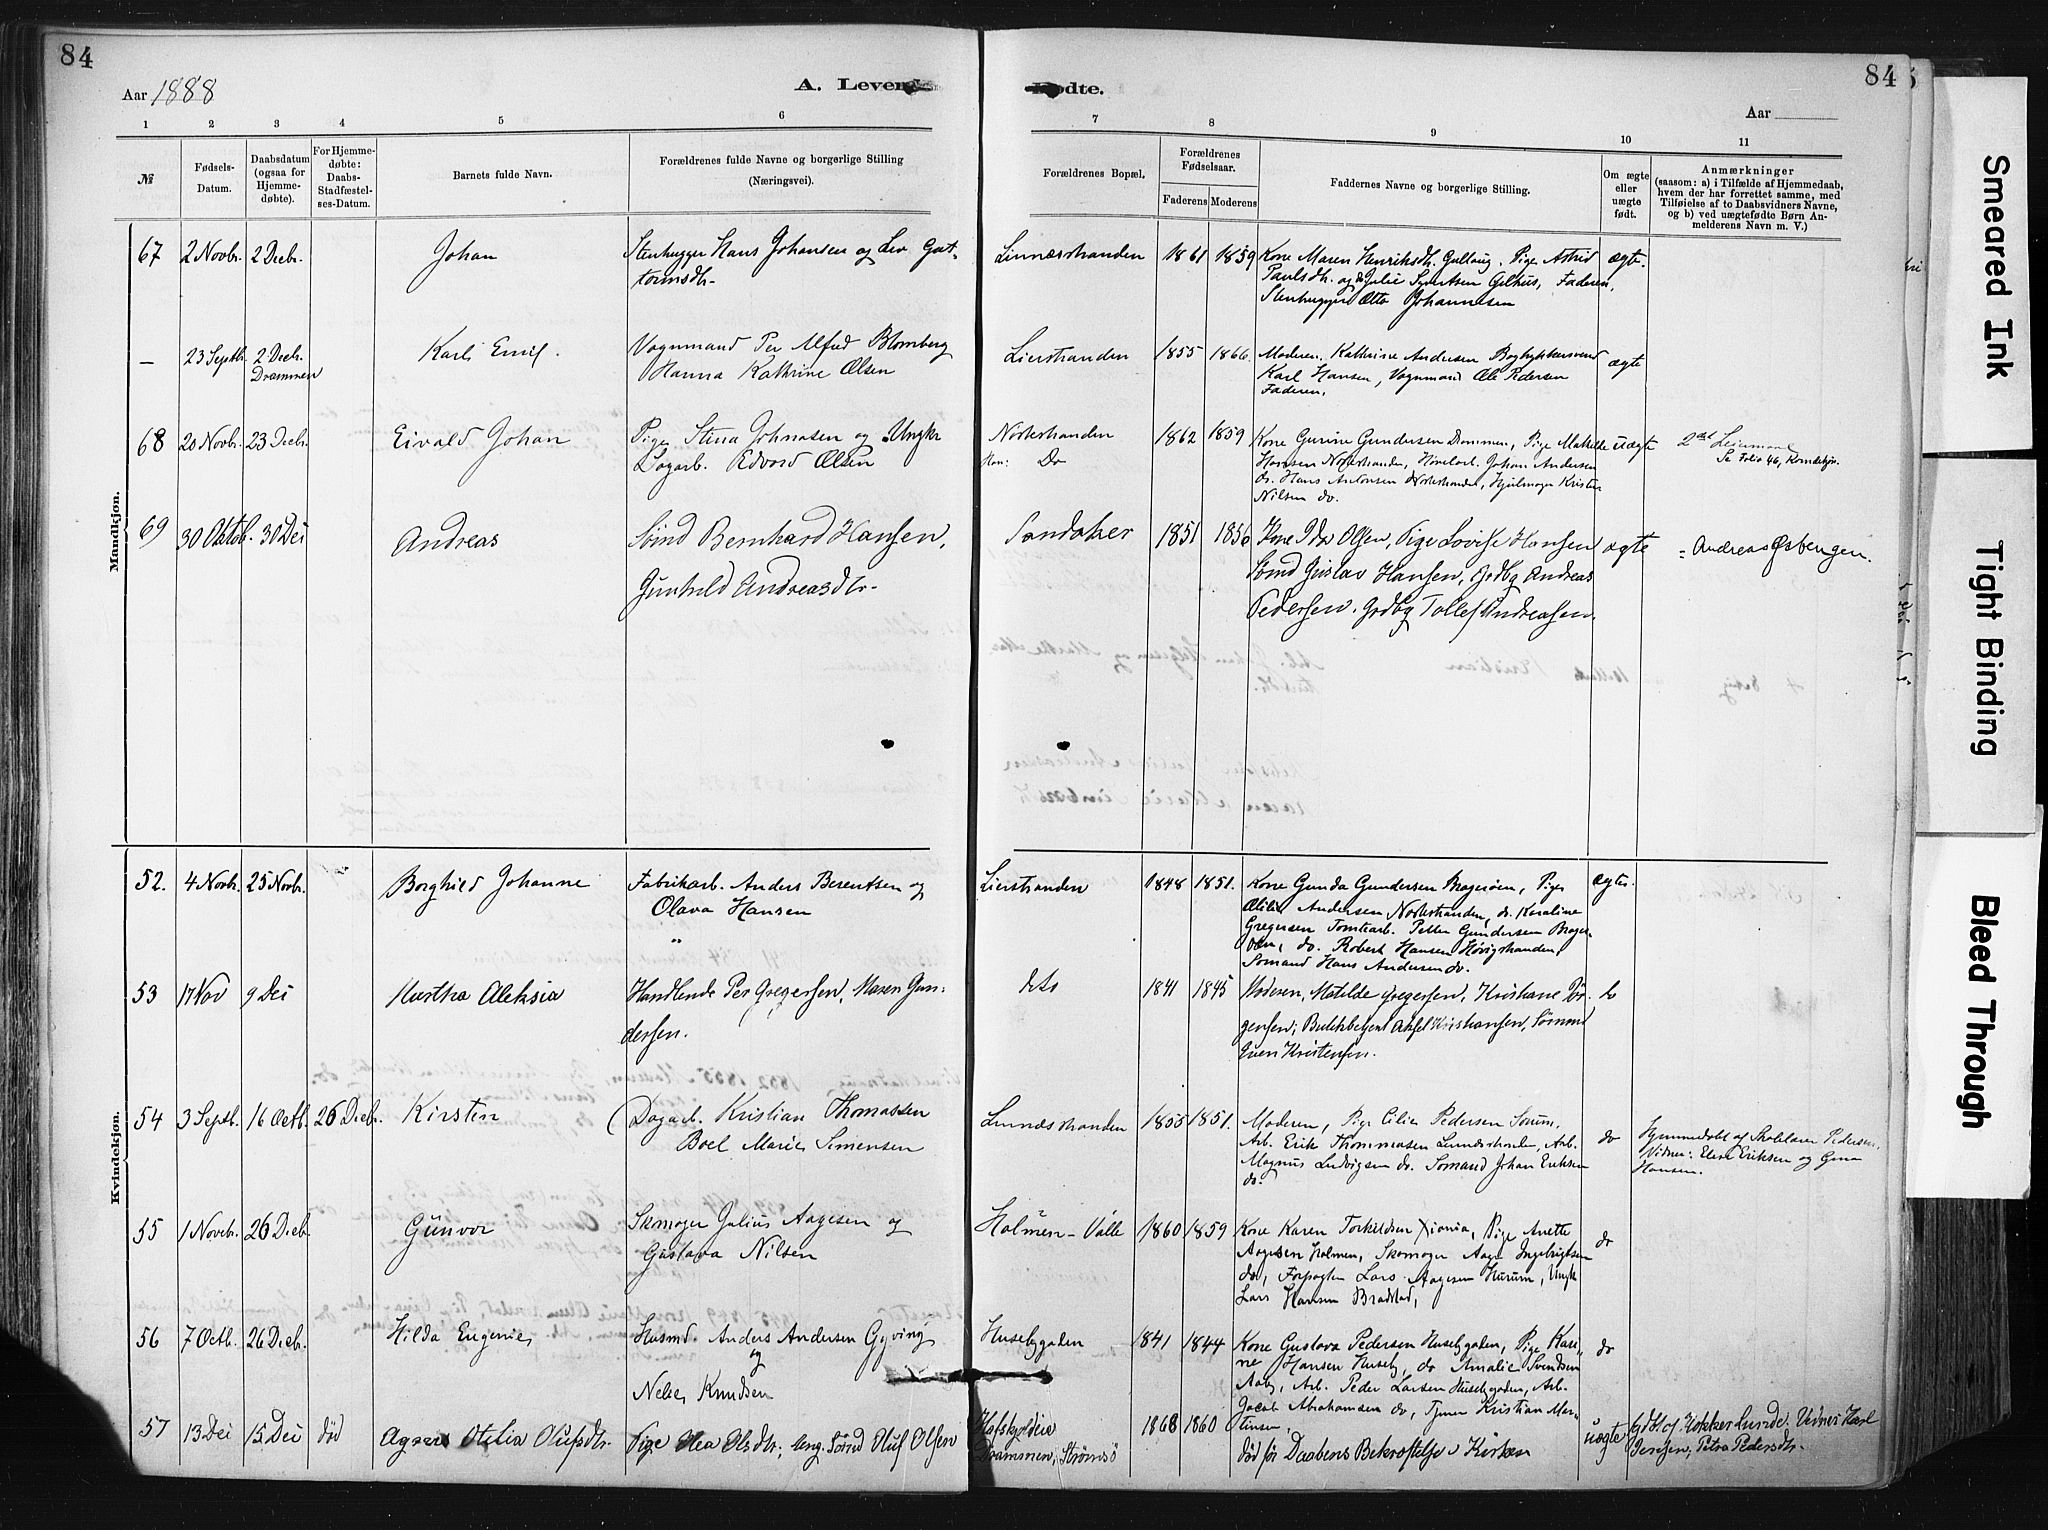 84
Aar 1888
A. Levende
1 2 3 4 5 6
№
Fødsels-
Datum.
Daabsdatum
(ogsaa for
Hjemme-
døbte).
For Hjemme-
døbte:
Daabs-
Stadfæstel-
ses-Datum.
Barnets fulde Navn.
Forældrenes fulde Navne og borgerlige Stilling
(Næringsvei).
Fødte.
84
Aar
7 8 9 10 11
Forældrenes Bopæl.
Forældrenes
Fødselsaar.
Faderens Moderens
Faddernes Navne og borgerlige Stilling.
Om ægte
eller
uægte
født.
Anmærkninger
(saasom: a) i Tilfælde af Hjemmedaab,
hvem der har forrettet samme, med
Tilføielse af to Daabsvidners Navne,
og b) ved uægtefødte Børn An-
melderens Navn m. V.)
Mandkjøn.
67 2 Novbr. 2 Decbr. Johan Stenhugger Hans Johansen og Liv Gut-
tormsdtr.
1861 1859 Kone Maren Henriksdtr. Gullaug. Pige Astrid ægte.
Paulsdtr. og Julie Gilhus, Faderen,
Stenhugger Otto Johannesen
— 23 Septbr. 2 Decbr. Karl Emil. Vognmand Per Alfred Blomberg
Drammen
Hanna Kathrine Olsen
Lierstranden 1855 1866. Moderen. Kathrine Andersen Bogtrykkersvend ægte
Karl Hansen, Vognmand Ole Pedersen
Faderen.
68 20 Novbr. 23 Decbr. Eivald Johan Pige Stina Johnasen og Ungkr
Dagarb. Edvard Olsen
Nøstestranden
Han: Do
1862 1859 Kone Gurine Gundersen Drammen, Pige Mathilde uægte
Hansen Nøstestranden, Høvlearb. Johan Andersen
do. Hans Antonsen Nøstestranden, Hjulmager Kristen
Nilsen do.
2det Leiermaal
Se Folio 46, Kvindekjøn.
69 30 Oktob. 30 Dec Andreas Sømd Bernhard Hansen,
Gunhild Andreasdtr.
Sandaker 1851 1856 Kone Ida Olsen, Pige Lovise Hansen ægte = Andreas Øsbergen.
Sømd Gustav Hansen, Grdbg Andreas
Pedersen. Grdbg Tollef Andreassen.
Kvindekjøn.
52. 4 Novbr. 25 Novbr. Borghild Johanne Fabrikarb. Anders Berentsen og
Olava Hansen
Lierstranden 1848 1851. Kone Gunda Gundersen Bragerøen, Pige ægte.
Otilie Andersen Nøstestranden, do. Karoline
Gregersen Tomtearb. Petter Gundersen Brager-
øen, do. Robert Hansen Høvigstranden,
Sømand Hans Andersen do.
53 17 Nov 9 Dec Martha Aleksia Handlende Per Gregersen, Maren Gun-
dersen.
1841 1845 Moderen, Matilde Gregersen, Kristiane Jør-
gensen, Aksel Kristiansen, Sømmd
Even Kristensen.
54 3 Septb. 16 Octb. 26 Decbr. Kirsten Dagarb. Kristian Thomassen
Boel Marie Simensen
Linnesstranden 1855 1851. Moderen, Pige Cilia Pedersen Sørum.
Arb. Erik Thommasen Linnesstranden, Arb. do
Magnus Ludvigsen do. Sømand Johan Eriksen
do.
Hjemmedøbt af Skolelærer Pedersen.
Vidner: Elise Eriksen og Gina
Hansen.
55 1 Novbr. 26 Decb. Gunvor Skomager Julius Aagesen og
Gustava Nilsen
Holmen-Valle 1860 1859 Kone Karen Torkildsen Xiania, Pige Anette do
Aagesen Holmen, Skomager Aage Ingebrigtsen
do, Forpagter Lars Aagesen Hurum, Ungk
Lars Hansen Bradstad,
56 7 Octb. 26 Decb. Hilda Eugenie Husmd. Anders Andersen Gyving
og
Nelle Knudsen
Husebygaden 1841 1844 Kone Gustava Pedersen Husebygaden, Pige Kari- do
ne Hansen Huseby, do Amalie Svendsen
Aaby, Arb. Peder Larsen Husebygaden, Arb.
Jacob Abrahamsen do, Tjener Kristian Mar-
tinsen.
57 13 Dec 15 Dec død Agnes Otilia Olufsdtr. Pige Thea Olsdtr, Ung. Sømd Oluf Olsen
Drammen, Strømsø 1868 1860 død før Daabens Bekræftelse i Kirken uægte
Gdbt. af Klokker Lunde. Vidner: Karl
Jensen, Petra Pedersdtr.
Smeared Ink
Tight Binding
Bleed Through